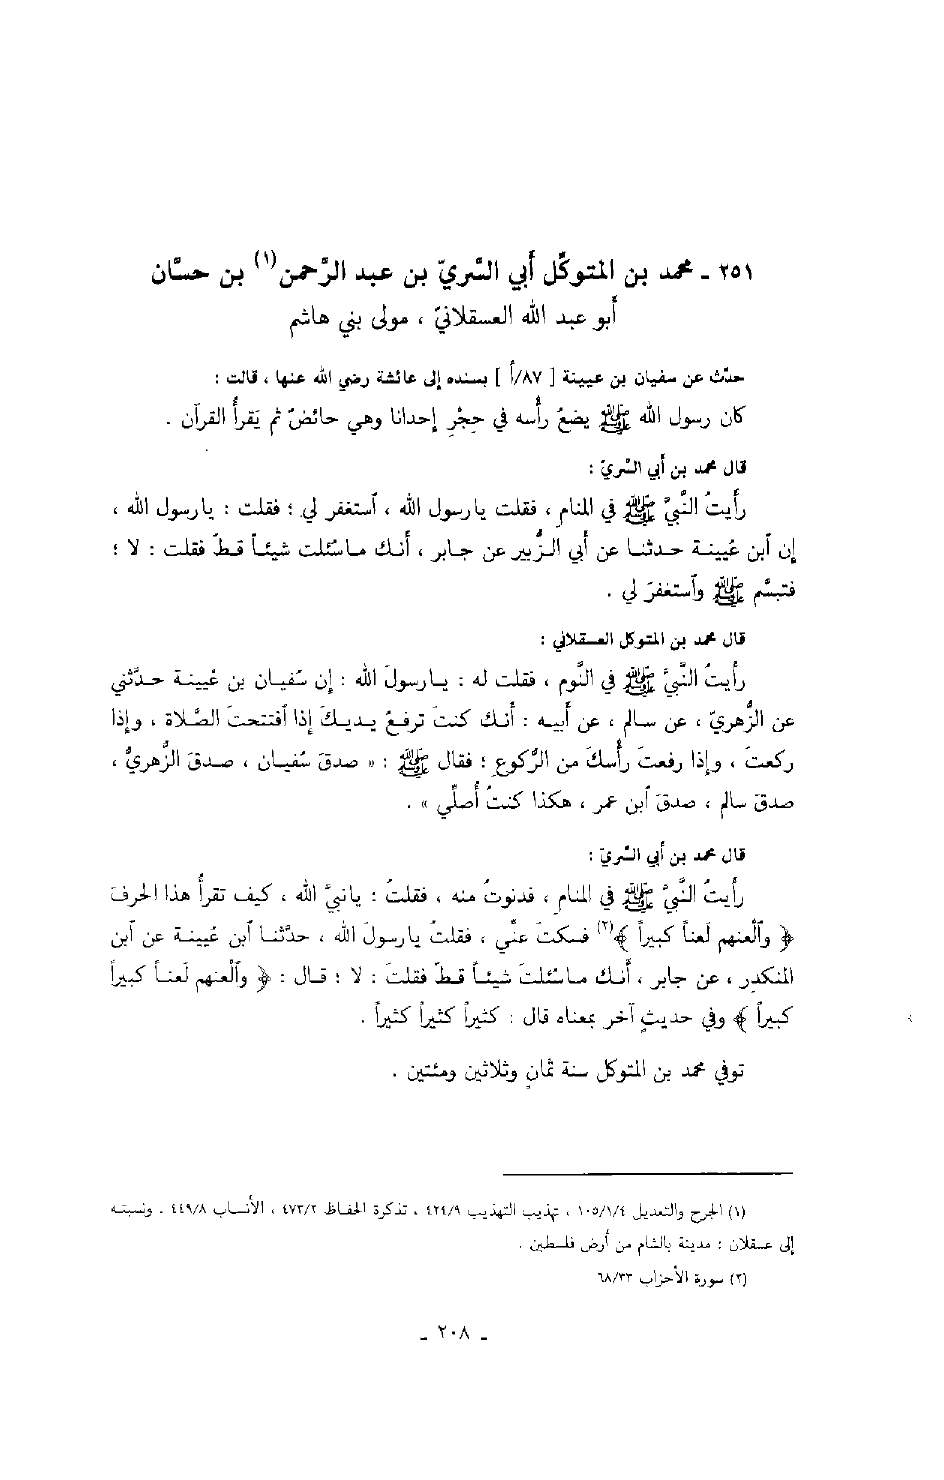 ٢٥١ ـ محمد بن المتوكّل أبي السّريّ بن عبد الرَّحمن(١) بن حسَّان
أبو عبد الله العسقلانيّ ، مولى بني هاشم
حدّث عن سفيان بن عيينة [ ٨٧/أ ] بسنده إلى عائشة رضي الله عنها ، قالت :
كان رسول الله ﷺ يضعُ رأسه في حِجْرِ إحدانا وهي حائضٌ ثم يَقرأُ القرآن .
قال محمد بن أبي السّريّ :
رأيتُ النَّبيَّ ﷺ في المنام ، فقلت يا رسول الله ، ٱستغفر لي ؛ فقلت : يا رسول الله ،
إن ٱبن عُيينة حدثنا عن أبي الزُّبير عن جابر ، أنك ما سُئلت شيئاً قطّ فقلت : لا ؛
فتبسَّم ﷺ وٱستغفرَ لي .
قال محمد بن المتوكل العسقلاني :
رأيتُ النَّبيَّ ﷺ في النَّوم ، فقلت له : يا رسولَ الله : إن سُفيان بن عُيينة حدَّثني
عن الزُّهريّ ، عن سالم ، عن أبيه : أنك كنتَ ترفعُ يديكَ إذا ٱفتتحتَ الصَّلاة ، وإذا
ركعتَ ، وإذا رفعتَ رأسكَ من الرُّكوع ؛ فقال ﷺ : « صدقَ سُفيان ، صدقَ الزُّهريُّ ،
صدقَ سالم ، صدقَ ٱبن عمر ، هكذا كنتُ أُصلِّي » .
قال محمد بن أبي السّريّ :
رأيتُ النَّبيَّ ﷺ في المنامِ ، فدنوتُ منه ، فقلتُ : يا نبيَّ الله ، كيف تقرأُ هذا الحرفَ
﴿ وٱلْعنهم لَعناً كبيراً ﴾(٢) فسكتَ عنِّي ، فقلتُ يا رسولَ الله ، حدَّثنا ٱبن عُيينة عن ٱبن
المنكدِر ، عن جابر ، أنك ما سُئلتَ شيئاً قطّ فقلتَ : لا ؛ قال : ﴿ وٱلْعنهم لَعناً كبيراً
كبيراً ﴾ وفي حديثٍ آخر بمعناه قال : كثيراً كثيراً كثيراً .
توفي محمد بن المتوكل سنة ثمانٍ وثلاثين ومئتين .
(١) الجرح والتعديل ١٠٥/١/٤ ، تهذيب التهذيب ٤٢٤/٩ ، تذكرة الحفاظ ٤٧٣/٢ ، الأنساب ٤٤٩/٨ . ونسبته
إلى عسقلان : مدينة بالشام من أرض فلسطين .
(٢) سورة الأحزاب ٦٨/٣٣
ـ ٢٠٨ ـ